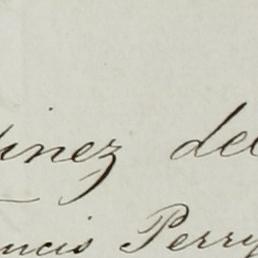 tinez del
ncis Perry